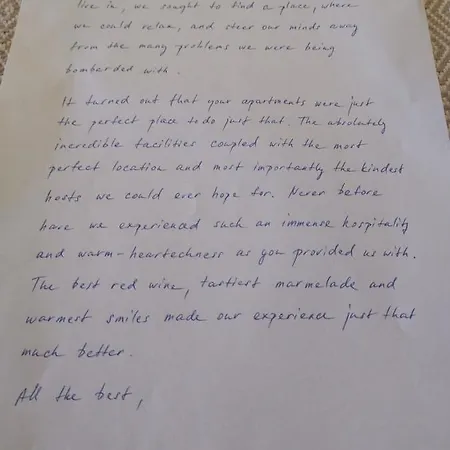 live in, we sought to find a place, where
we could relax, and steer our minds away
from the many problems we were being
bombarded with.
It turned out that your apartments were just
the perfect place to do just that. The absolutely
incredible facilities coupled with the most
perfect location and most importantly the kindest
hosts we could ever hope for. Never before
have we experienced such an immense hospitality
and warm-heartedness as you provided us with.
The best red wine, tartiest marmelade and
warmest smiles made our experience just that
much better.
All the best,